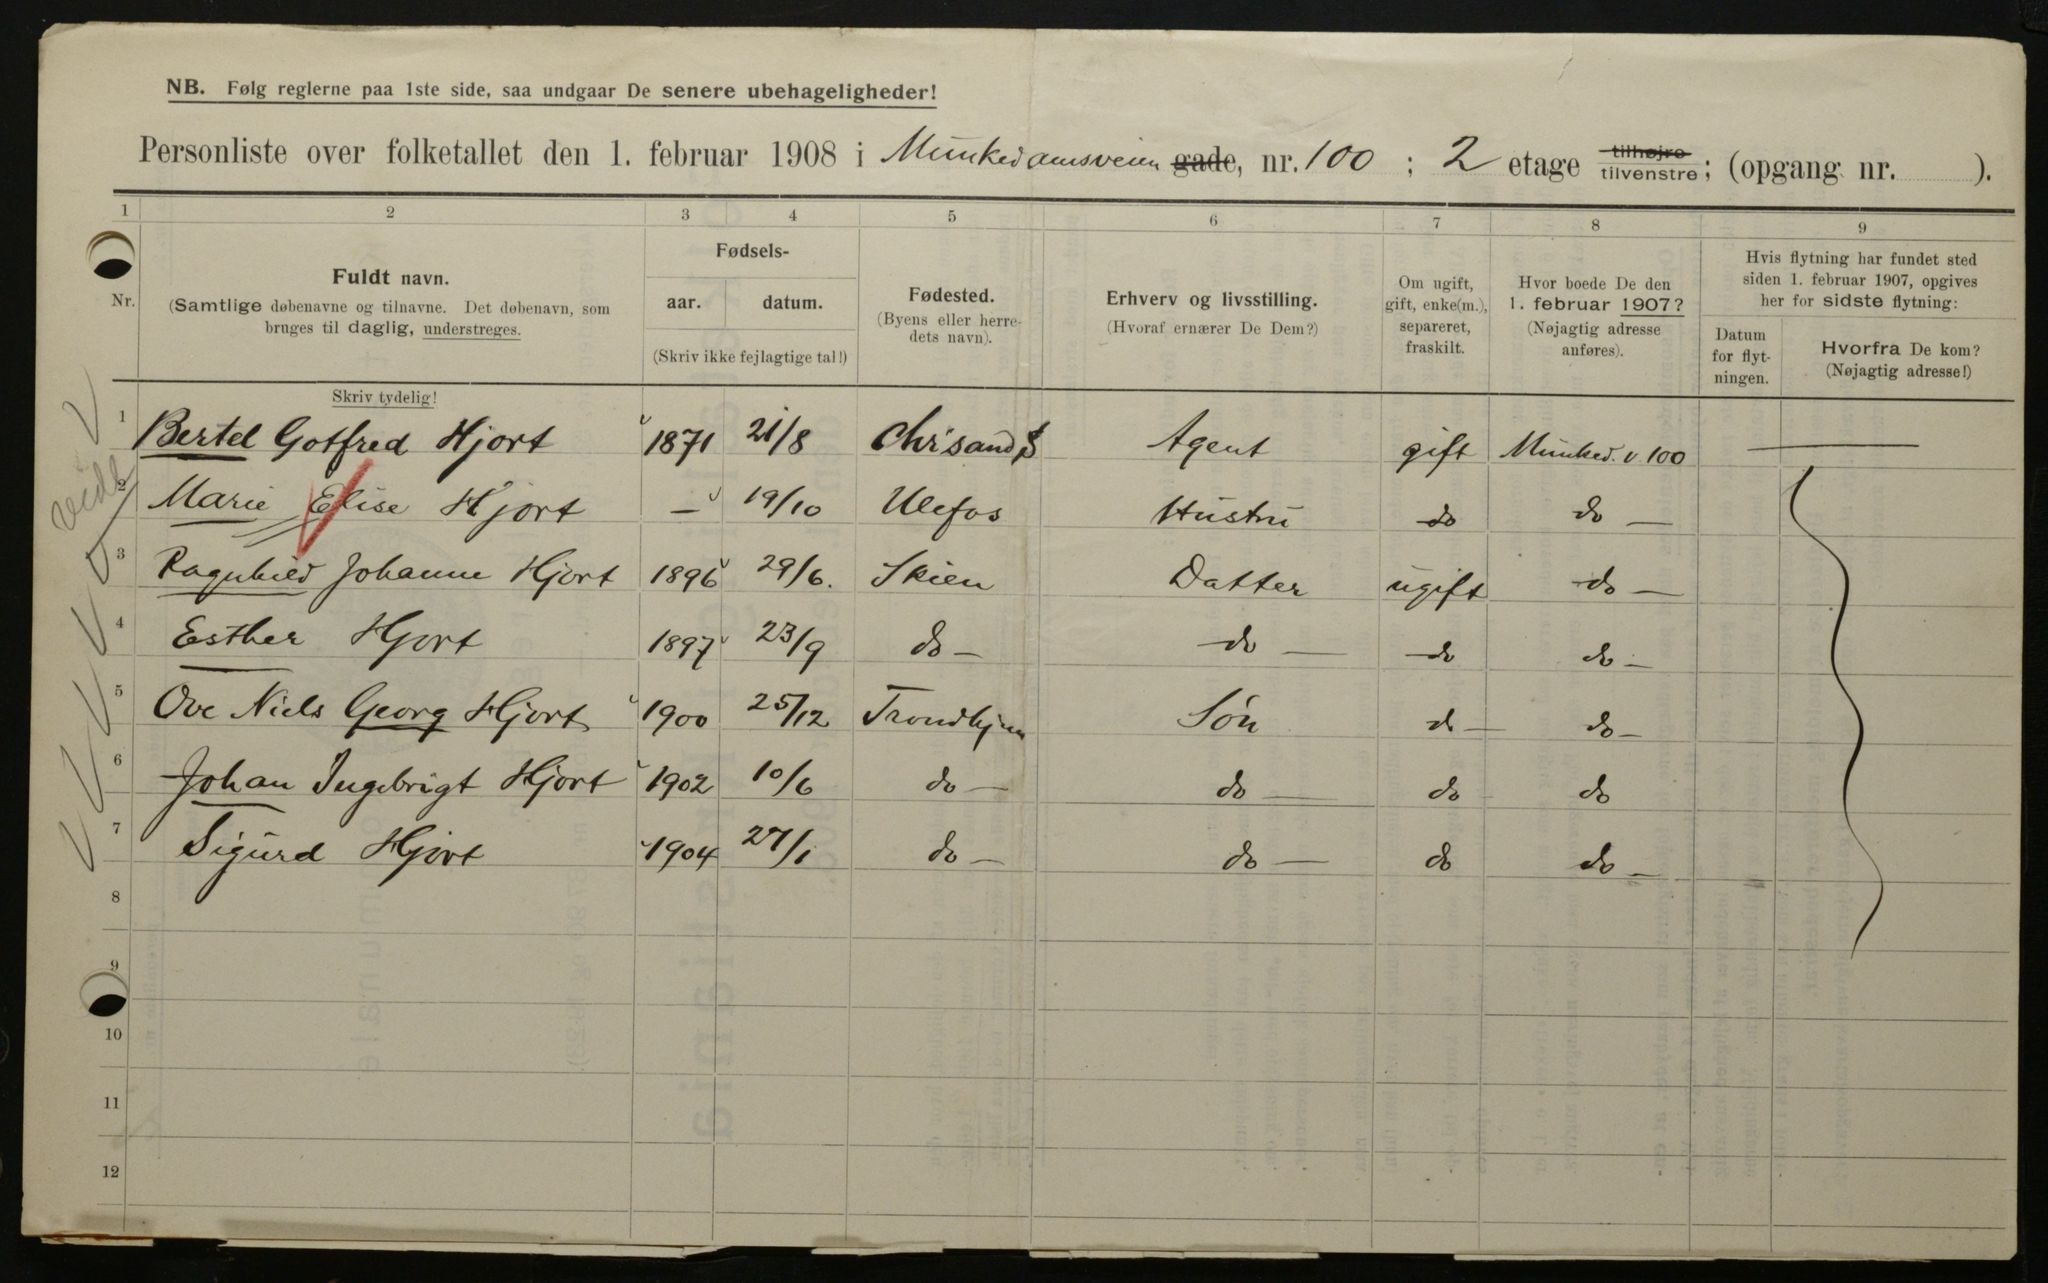 NB. Følg reglerne paa 1ste side, saa undgaar De senere ubehageligheder!
Personliste over folketallet den 1. februar 1908 i Munkedamsveien gade, nr. 100 ; 2 etage tilhøjre tilvenstre; (opgang nr. ).
1 2 3 4 5 6 7 8 9
Nr.
Fuldt navn.
(Samtlige døbenavne og tilnavne. Det døbenavn, som
bruges til daglig, understreges.
Fødsels-
aar. datum.
(Skriv ikke fejlagtige tal!)
Fødested.
(Byens eller herre-
dets navn).
Erhverv og livsstilling.
(Hvoraf ernærer De Dem?)
Om ugift,
gift, enke(m.),
separeret,
fraskilt.
Hvor boede De den
1. februar 1907?
(Nøjagtig adresse
anføres).
Hvis flytning har fundet sted
siden 1. februar 1907, opgives
her for sidste flytning:
Datum
for flyt-
ningen.
Hvorfra De kom?
(Nøjagtig adresse!)
Skriv tydelig!
1 Bertel Gotfred Hjort 1871 21/8 Chrisand S Agent gift Munked. v 100 —
vide
2 Marie Elise Hjort — 19/10 Ulefos Hustru do do —
3 Ragnhild Johanne Hjort 1896 29/6. Skien Datter ugift do —
4 Esther Hjort 1897 23/9 do — do — do do —
5 Ove Niels Georg Hjort 1900 25/12 Trondhjem Søn do — do —
6 Johan Ingebrigt Hjort 1902 10/6 do — do — do do
7 Sigurd Hjort 1904 27/1 do — do — do do —
8
9
10
11
12